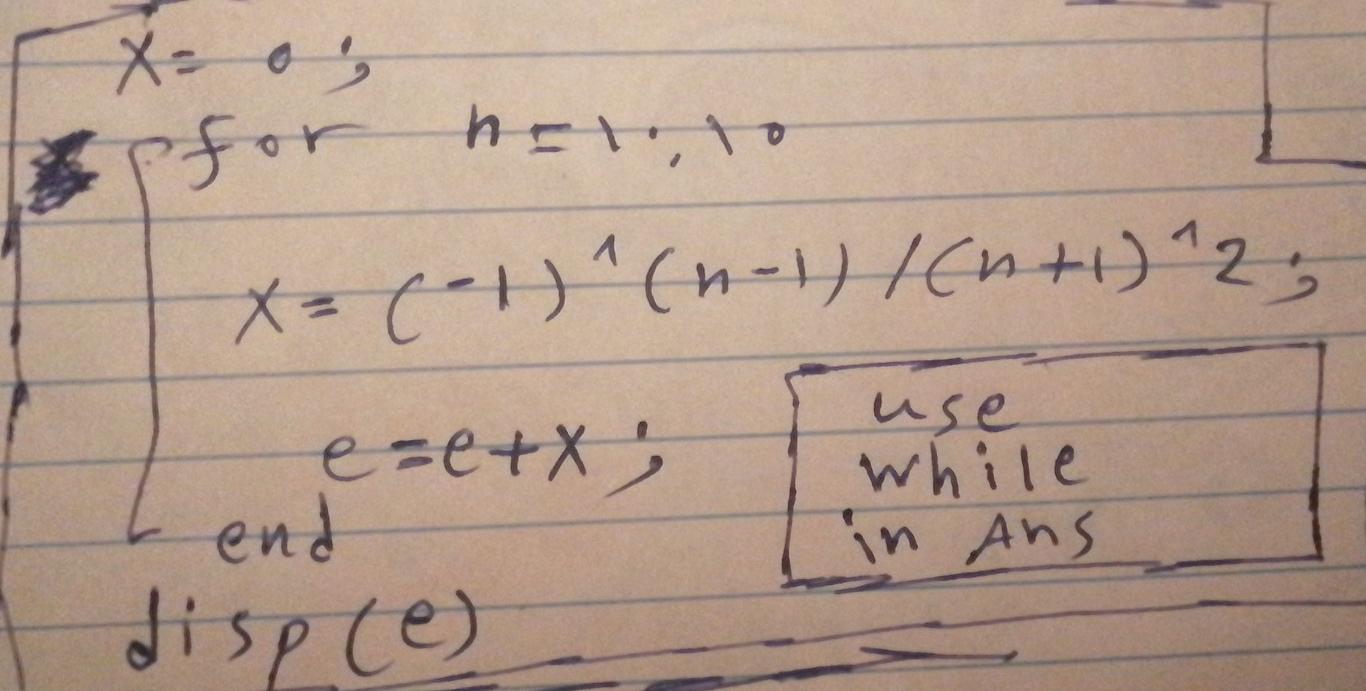 x= 0 ;
for n=1:10
x= (-1)^(n-1)/(n+1)^2;
e=e+x ;
end
disp(e)
use
while
in Ans